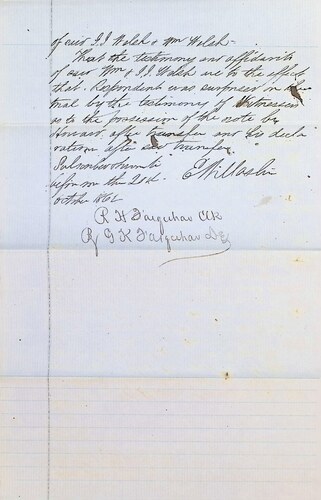 of said J J Walsh & Wm Walsh -
That the testimony and affidavits
of said Wm & J J Walsh are to the effect
that Respondent was surprised in the
trial by the testimony of Witnesses
as to the possession of the note by
Howard after transfer and his decla-
ration after said transfer
Subscribed & sworn to
before me the 21st
October 1862
R H Farquhar Clk
By G K Farquhar D C